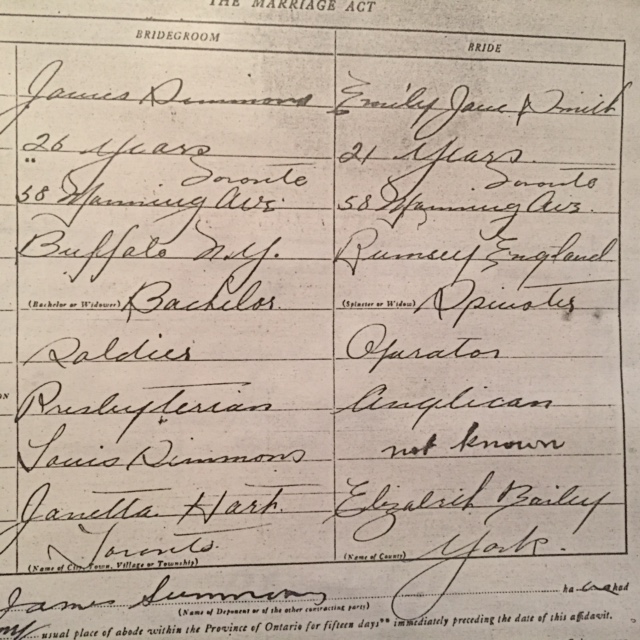 THE MARRIAGE ACT
BRIDEGROOM BRIDE
James Simmons Emily Jane Smith
26 Years 21 Years
Toronto Toronto
58 Manning Ave. 58 Manning Ave.
Buffalo N.Y. Rumsey England
(Bachelor or Widower) Bachelor (Spinster or Widow) Spinster
Soldier Operator
Presbyterian Anglican
Louis Simmons not known
Janetta Hart. Elizabeth Bailey
Toronto York.
(Name of City, Town, Village or Township) (Name of County)
James Simmons ha
(Name of Deponent or of the other contracting party)
usual place of abode within the Province of Ontario for fifteen days** immediately preceding the date of this affidavit.